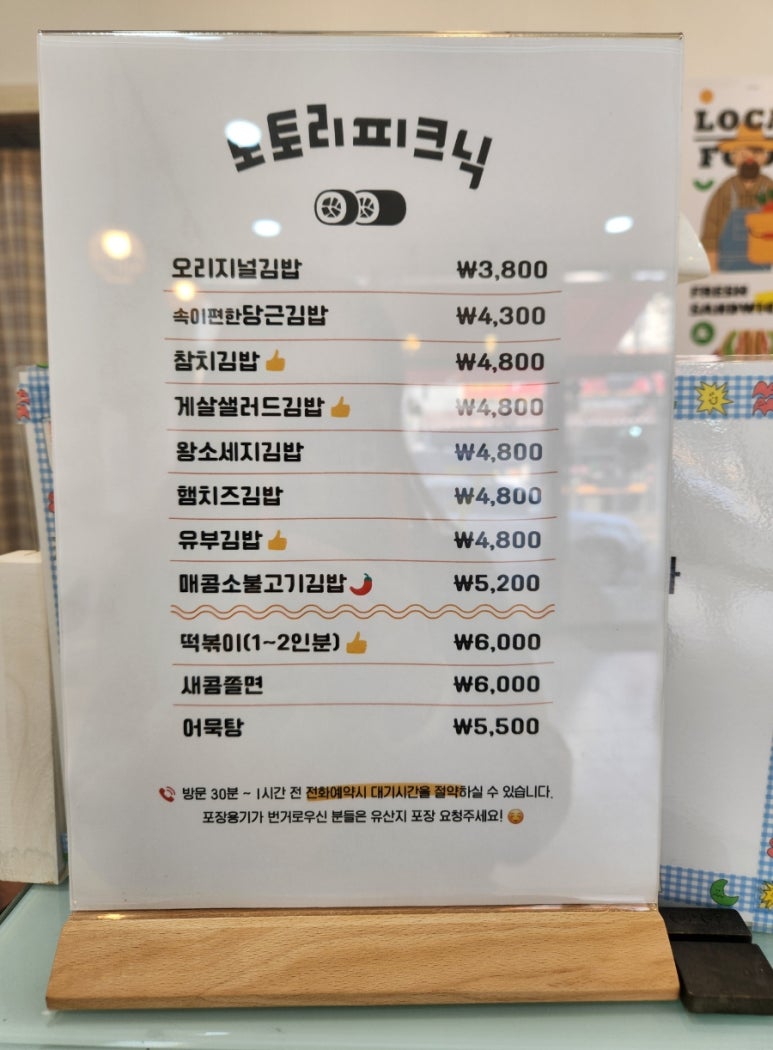 토리피크닉
오리지널김밥 ₩3,800
속이편한당근김밥 ₩4,300
참치김밥 ₩4,800
게살샐러드김밥 ₩4,800
왕소세지김밥 ₩4,800
햄치즈김밥 ₩4,800
유부김밥 ₩4,800
매콤소불고기김밥 ₩5,200
떡볶이(1~2인분) ₩6,000
새콤쫄면 ₩6,000
어묵탕 ₩5,500
방문 30분 ~ 1시간 전 전화예약시 대기시간을 절약하실 수 있습니다.
포장용기가 번거로우신 분들은 유산지 포장 요청주세요!
FRESH